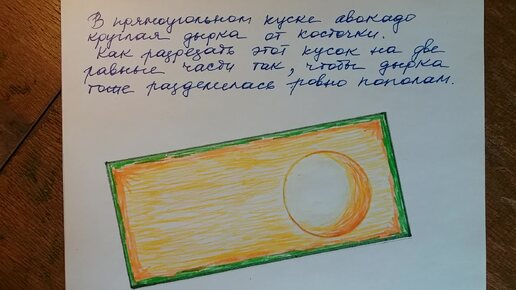 В прямоугольном куске авокадо
круглая дырка от косточки.
Как разрезать этот кусок на две
равные части так, чтобы дырка
тоже разделилась ровно пополам.